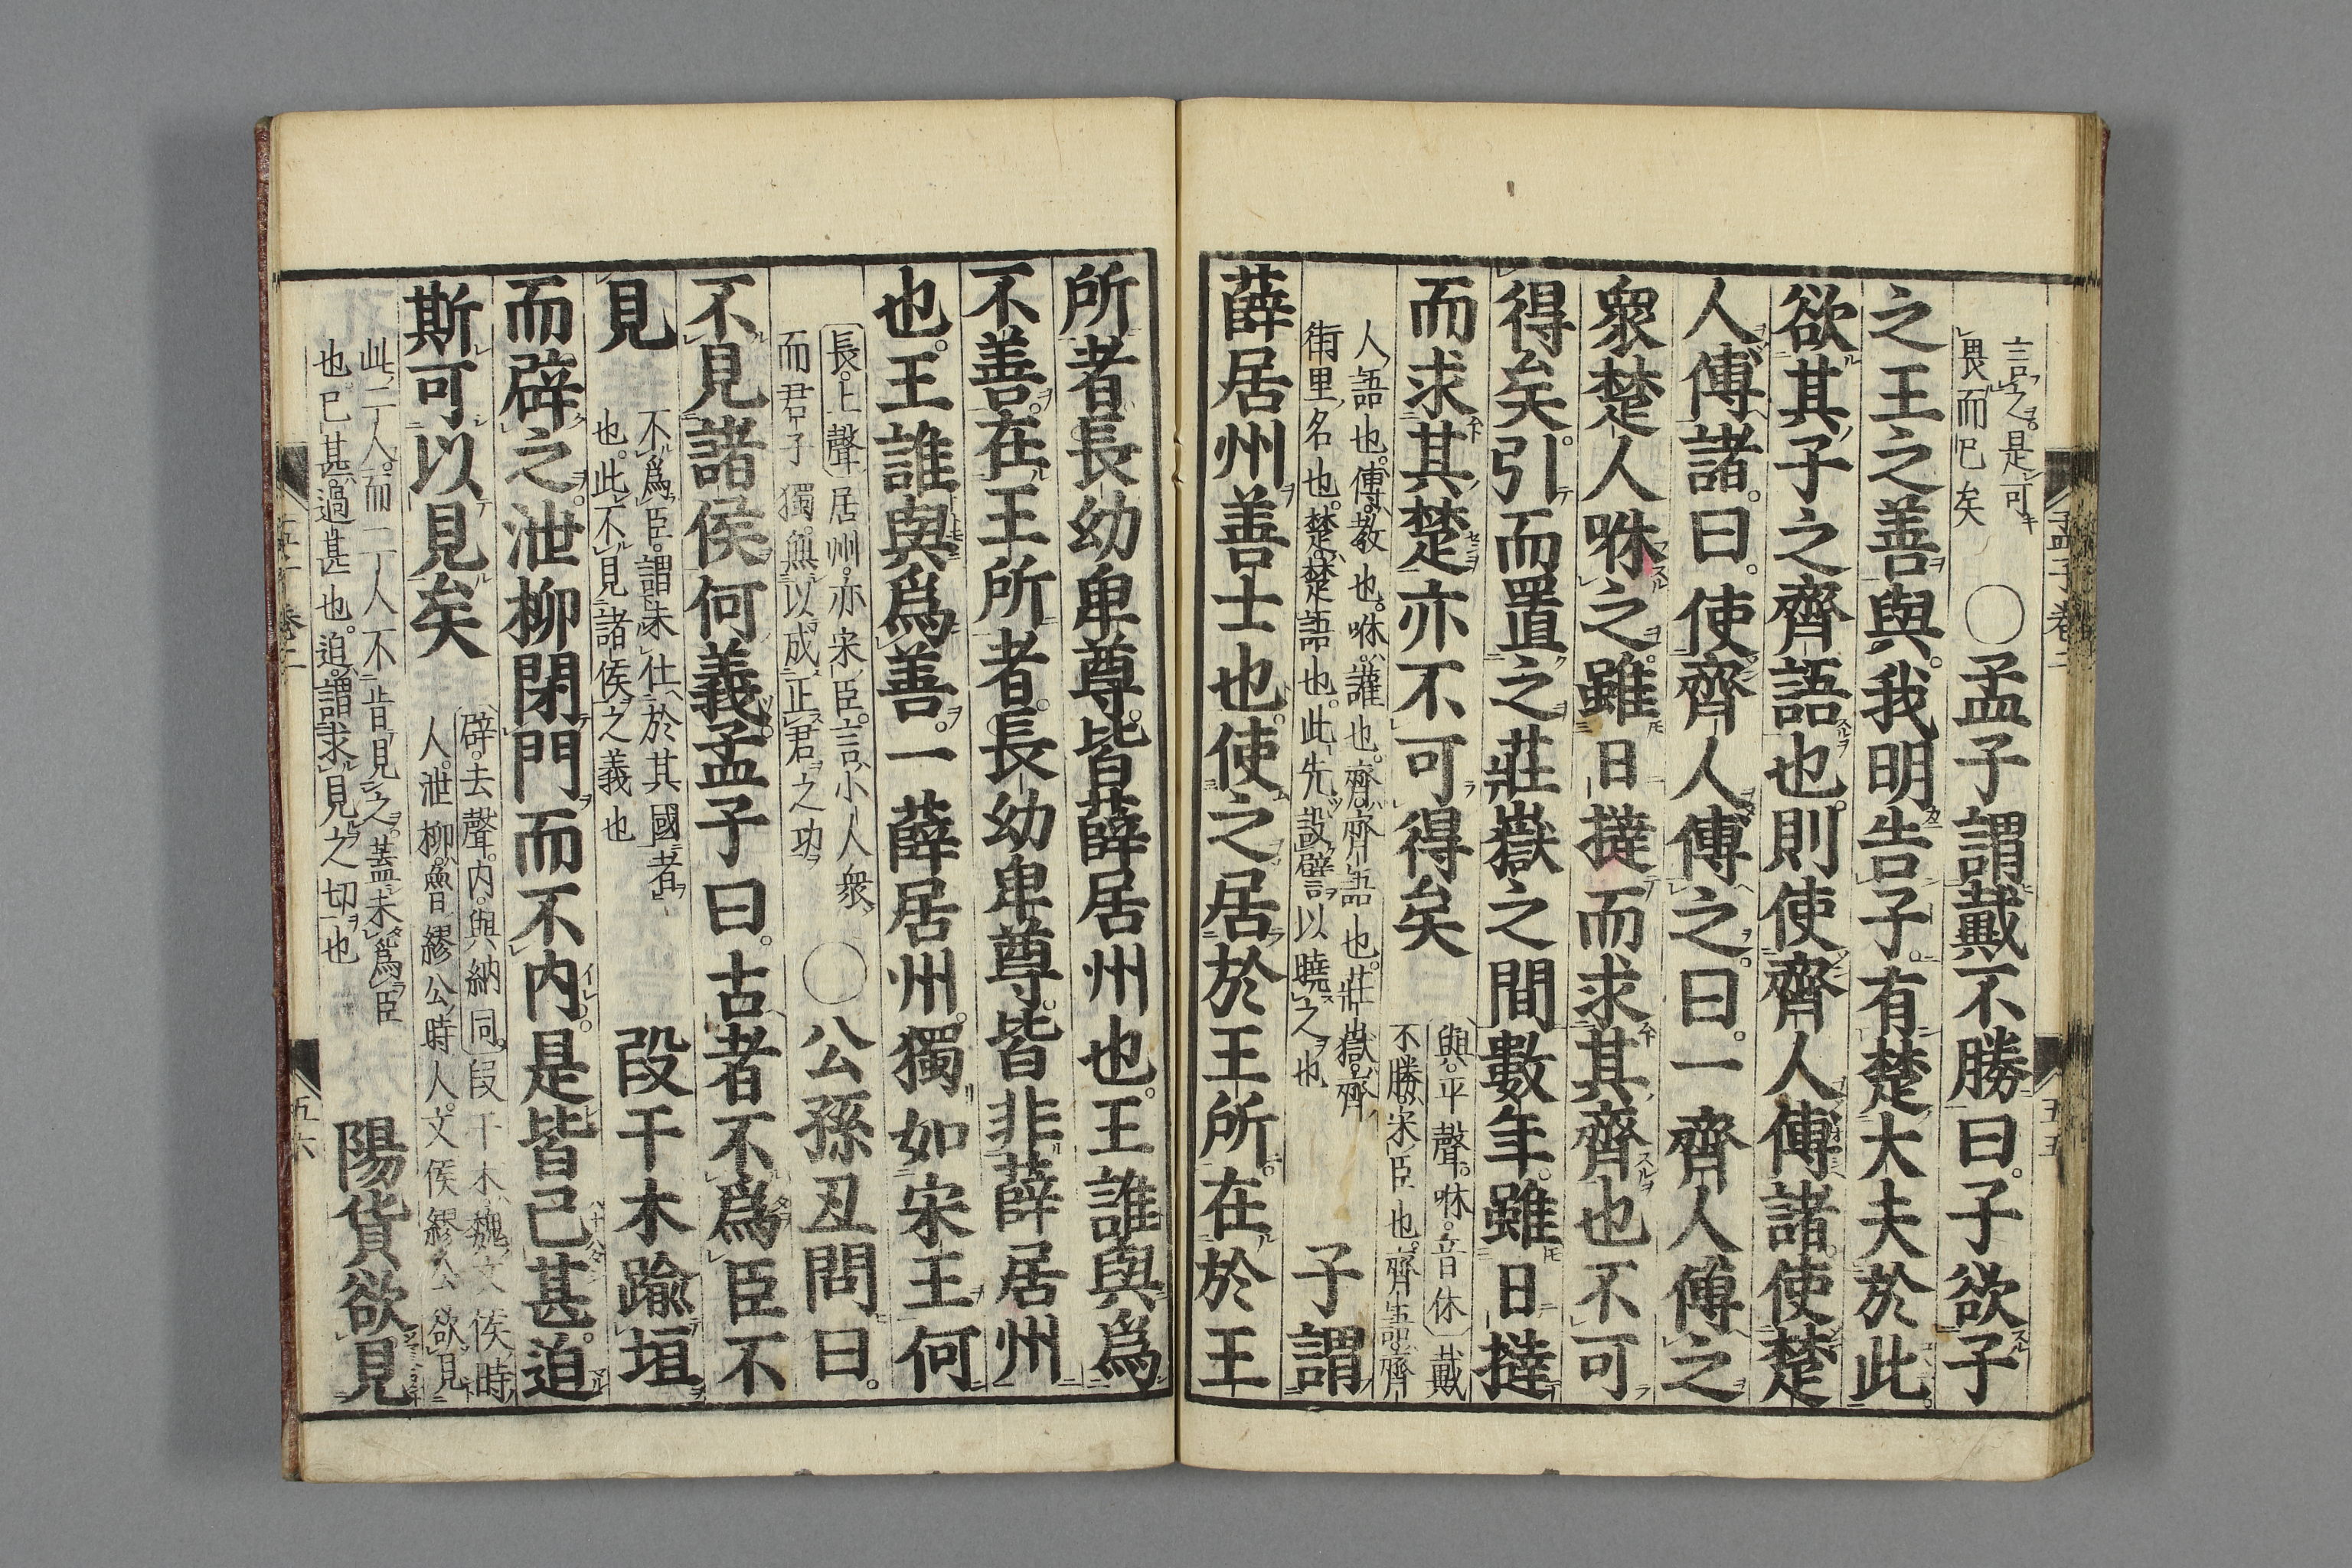 言之是可
畏而已矣
○孟子謂戴不勝曰子欲子
之王之善與我明告子有楚大夫於此
欲其子之齊語也則使齊人傅諸使楚
人傅諸曰使齊人傅之曰一齊人傅之
衆楚人咻之雖日撻而求其齊也不可
得矣引而置之莊嶽之間數年雖日撻
而求其楚亦不可得矣
與平聲咻音休戴
不勝宋臣也齊語齊
人語也傅教也咻讙也齊齊語也莊嶽齊
街里名也楚楚語也此先設譬以曉之也
子謂
薛居州善士也使之居於王所在於王
所者長幼卑尊皆薛居州也王誰與爲
不善在王所者長幼卑尊皆非薛居州
也王誰與爲善一薛居州獨如宋王何
長上聲居州亦宋臣言小人衆
而君子獨無以成正君之功
○公孫丑問曰
不見諸侯何義孟子曰古者不爲臣不
見
不爲臣謂未仕於其國者
也此不見諸侯之義也
段干木踰垣
而辟之泄柳閉門而不內是皆已甚迫
斯可以見矣
辟去聲內與納同段干木魏文侯時
人泄柳魯繆公時人文侯繆公欲見
此二人而二人不肯見之蓋未爲臣
也已甚過甚也迫謂求見之切也
陽貨欲見
孟子卷二
五五
五六